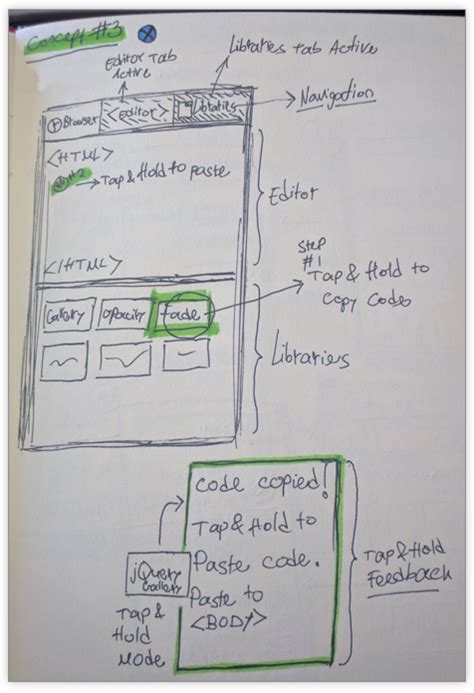 Concept #3
Editor Tab
Active
Libraries Tab Active
Browser
<editor>
Libraries
Navigation
<HTML>
#2
Tap & Hold to paste
Editor
</HTML>
Step
#1
Tap & Hold to
Copy Code
Gallery
opacity
fade
Libraries
Code copied!
Tap & Hold to
Paste code.
Paste to
<BODY>
jQuery
Gallery
Tap &
Hold
Mode
Tap & Hold
Feedback